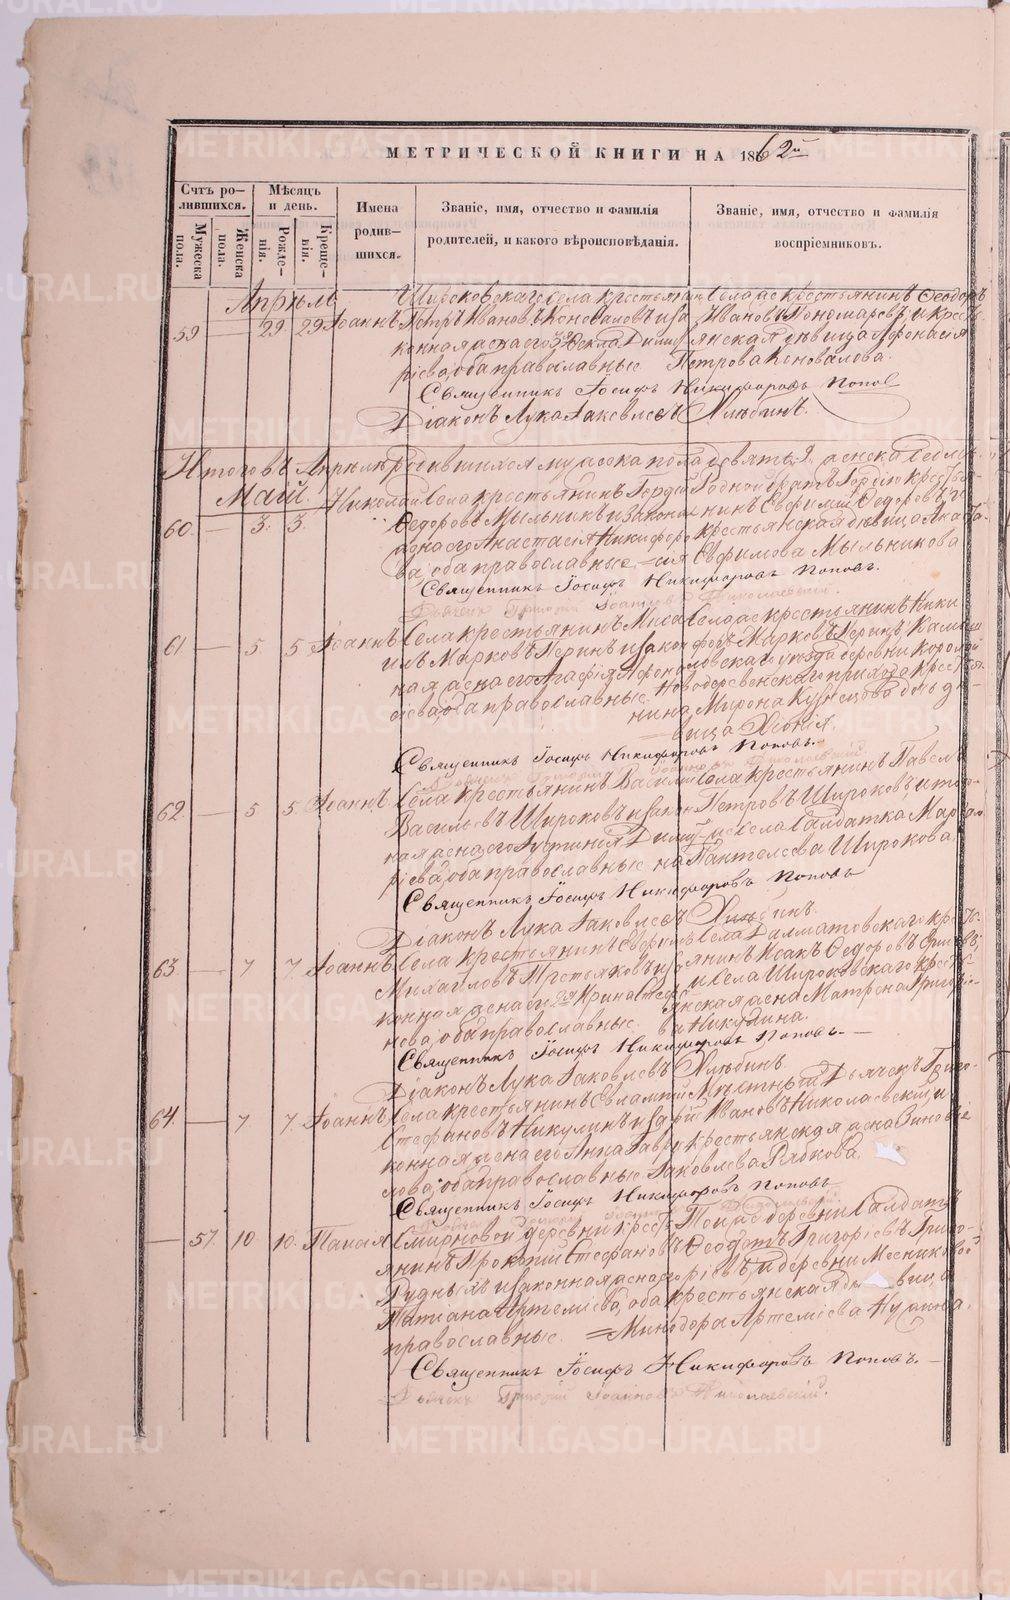 МЕТРИЧЕСКОЙ КНИГИ НА 1862й
Счтъ ро-
дившихся.
Мужеска пола.
Женска пола.
Мѣсяцъ
и день.
Рожде-
нія.
Креще-
нія.
Имена
родив-
шихся.
Званіе, имя, отчество и фамилія
родителей, и какого вѣроисповѣданія.
Званіе, имя, отчество и фамилія
воспріемниковъ.
Апрѣль
59 — 29 29 Іоаннъ
Широковскаго села крестьянинъ
Петръ Ивановъ Коноваловъ и за
конная жена его Ѳекла Димит
ріева, оба православные
Села же крестьянинъ Ѳеодоръ
Ивановъ Пономаревъ, и кресть
янская дѣвица Афонасія
Петрова Коновалова.
Священникъ Іосифъ Никифоровъ Поповъ
Діаконъ Лука Іаковлевъ Хлѣбинъ.
Итого въ Апрѣлѣ родившихся мужеска пола девять 9. женска
Май
60. — 3. 3. Николай
Села крестьянинъ Гордій
Ѳедоровъ Мыльниковъ и законная
жена его Анастасія Никифоро
ва, оба православные
Родной братъ Гордію крестья-
нинъ Евфимій Ѳедоровъ, и
крестьянская дѣвица
Евфимова Мыльникова
Священникъ Іосифъ Никифоровъ Поповъ.
Дьячекъ Григорій Іоанновъ Николаевскій.
61 — 5 5 Іоаннъ
Села крестьянинъ Миха
илъ Марковъ Перинъ и закон
ная жена его Агафія Афона
сіева, оба православные
Села же крестьянинъ Ники
форъ Марковъ Перинъ, Камыш
ловскаго уѣзда деревни
Новодеревенскаго прихода крестья
нина Мирона Кузнецова дочь дѣ-
вица Хіонія.
Священникъ Іосифъ Никифоровъ Поповъ.
62. — 5 5. Іоаннъ
Села крестьянинъ Василій
Васильевъ Широковъ и закон
ная жена его Іустинія Димит
ріева, оба православные
Села крестьянинъ Павелъ
Петровъ Широковъ, и того
же села Салдатка Мар
на Пантелеева Широкова
Священникъ Іосифъ Никифоровъ Поповъ
Діаконъ Лука Іаковлевъ Хлѣбинъ.
63 — 7 7. Іоаннъ
Села крестьянинъ
Михаиловъ Третьяковъ и за
конная жена его Ирина Стефа
нова, оба православные
Села Далматовскаго кресть-
янинъ Исакъ Ѳедоровъ
и села Широковскаго кресть
янская жена Матрона Григорье-
ва Никулина.
Священникъ Іосифъ Никифоровъ Поповъ. —
Діаконъ Лука Іаковлевъ Хлѣбинъ.
64. — 7 7. Іоаннъ
Села крестьянинъ Евлампій
Стефановъ Никулинъ и за
конная жена его Анна Гаври
лова, оба православные
Мѣстный Дьячекъ Григо-
рій Ивановъ Николаевскій, и
крестьянская жена Зиновіе
Іаковлева Рябкова.
Священникъ Іосифъ Никифоровъ Поповъ
— 57. 10 10. Таисія
Смирновой деревни Крест
янинъ Прокопій Стефановъ
Рудныхъ и законная жена
Татіана Артеміева, оба
православные.
Той же деревни Салдатъ
Ѳеодотъ Григоріевъ
и деревни Мясниковой
крестьянская дѣвица
Минодора Артеміева
Священникъ Іосифъ Никифоровъ Поповъ. —
Дьячекъ Григорій Іоанновъ Николаевскій.